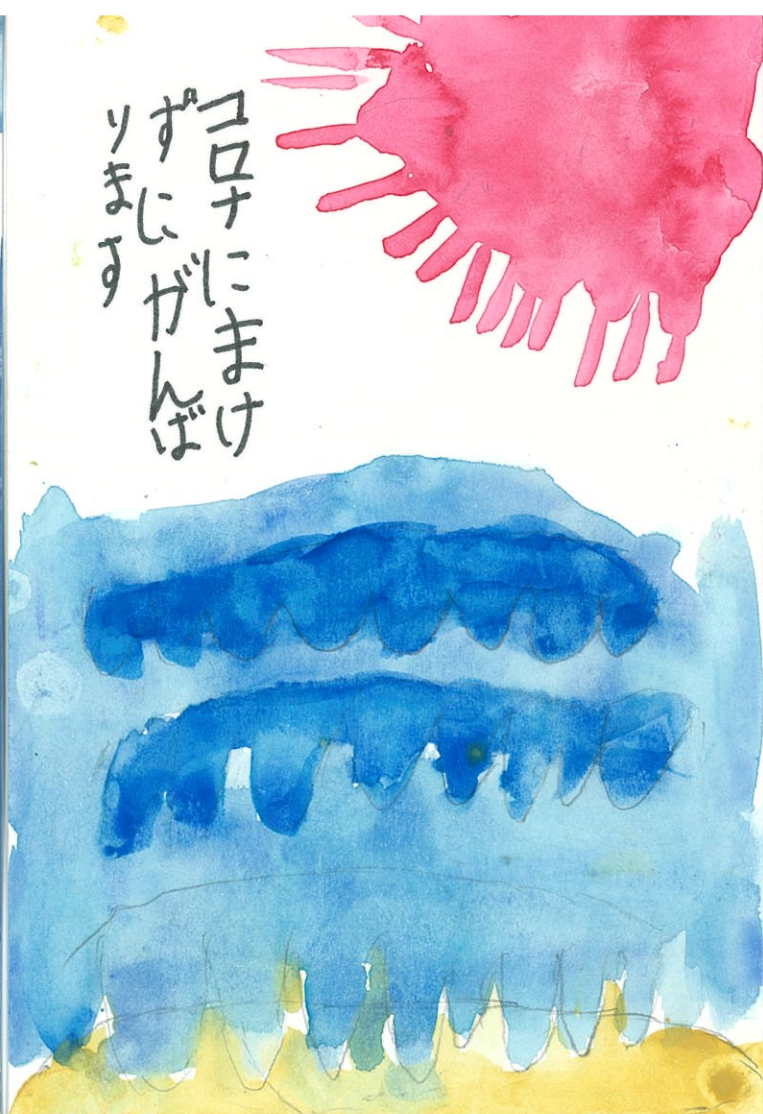 コロナにまけ
ずにがんば
ります